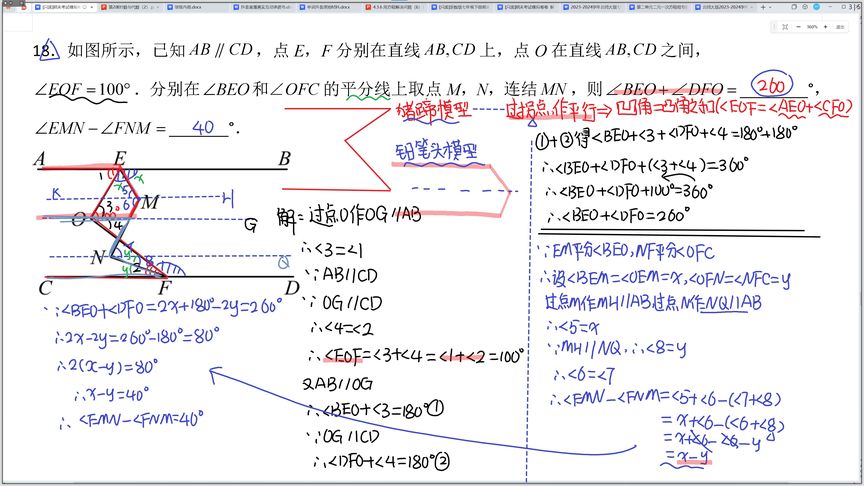 18. 如图所示，已知 AB∥CD，点 E，F 分别在直线 AB,CD 上，点 O 在直线 AB,CD 之间，
∠EOF＝100°．分别在∠BEO 和∠OFC 的平分线上取点 M，N，连结 MN，则∠BEO＋∠DFO＝ 260 °，
∠EMN－∠FNM＝ 40 °．
猪蹄模型
过拐点作平行⇒凹角=凸角之和(<EOF=<AEO+<CFO)
铅笔头模型
A E B
1 x x
K 5 H
3 6 M
O 4 G
N 7
y 8 Q
y 2
C F D
解：过点O作OG//AB
∴<3=<1
∵AB//CD
∵OG//CD
∴<4=<2
∴<EOF=<3+<4=<1+<2=100°
又AB//OG
∴<BEO+<3=180°①
∵OG//CD
∴<DFO+<4=180°②
①+②得<BEO+<3+<DFO+<4=180°+180°
∴<BEO+<DFO+(<3+<4)=360°
∴<BEO+<DFO+100°=360°
∴<BEO+<DFO=260°
∵EM平分<BEO,NF平分<OFC
∴设<BEM=<OEM=x,<OFN=<NFC=y
过点M作MH//AB过点N作NQ//AB
∴<5=x
∵MH//NQ,∴<8=y
∴<6=<7
∴<EMN-<FNM=<5+<6-(<7+<8)
=x+<6-(<6+<8)
=x+<6-<6-y
=x-y
∵<BEO+<DFO=2x+180°-2y=260°
∴2x-2y=260°-180°=80°
∴2(x-y)=80°
∴x-y=40°
∴<EMN-<FNM=40°